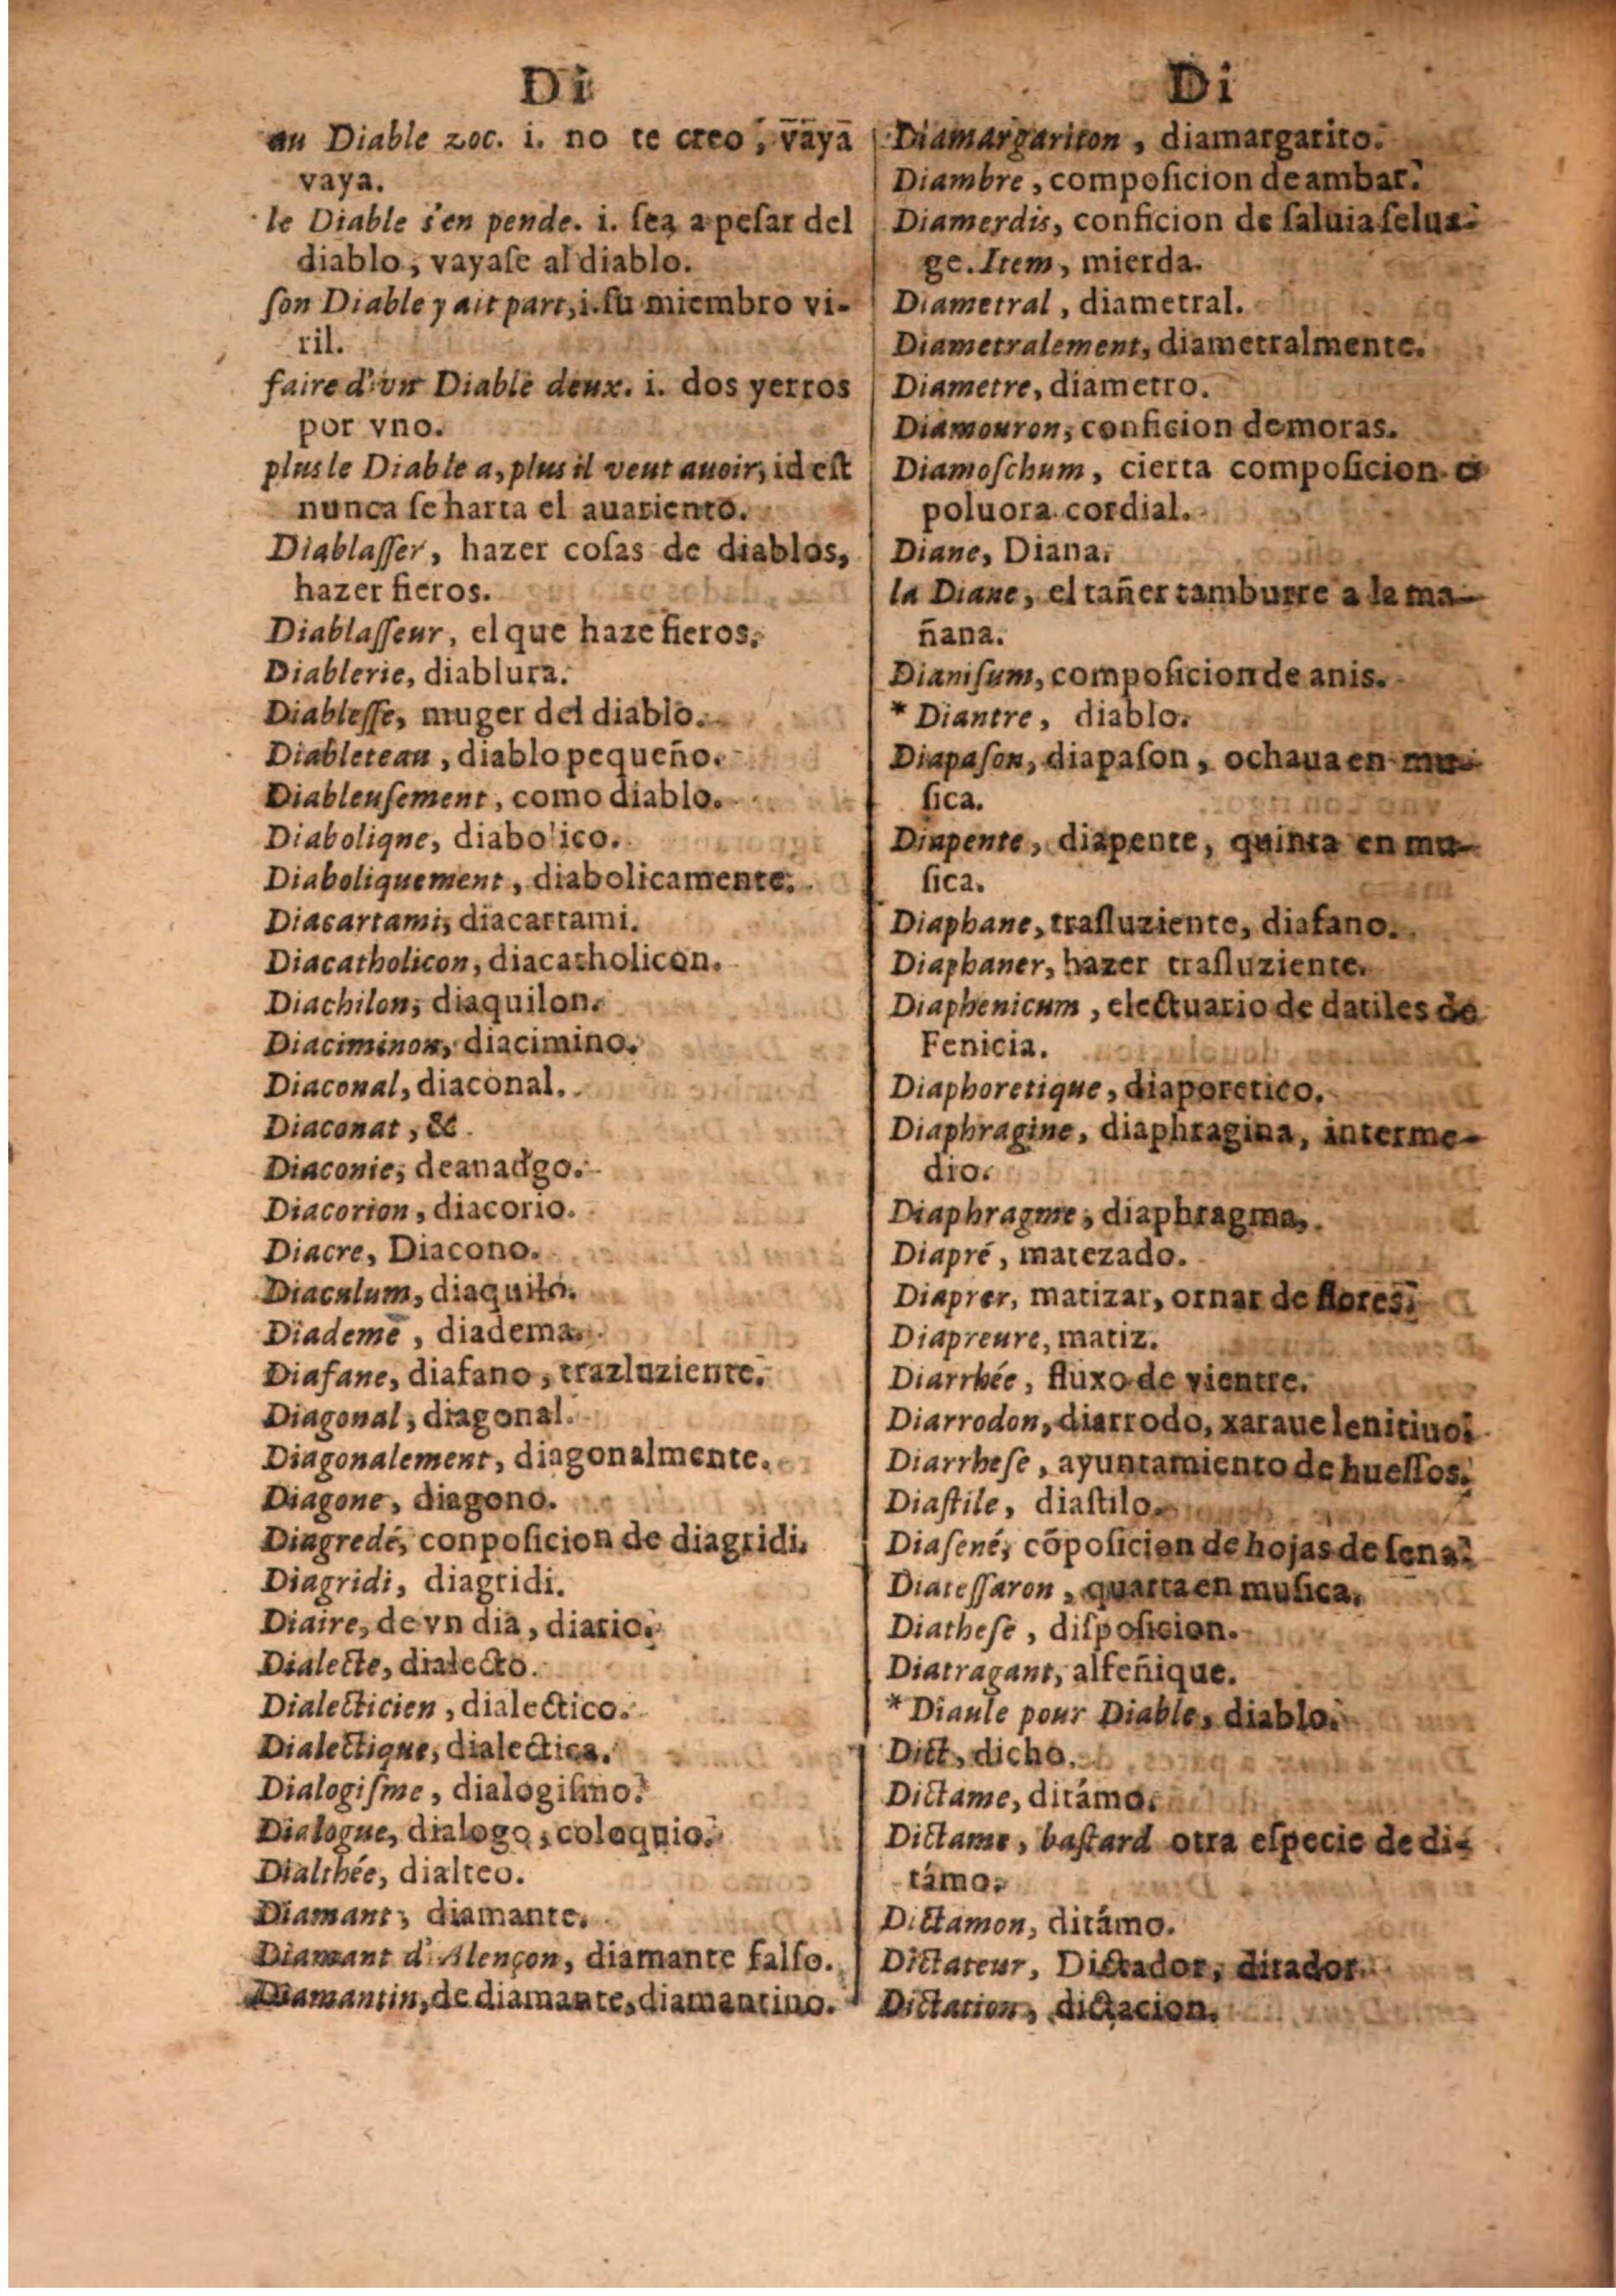 Di
au Diable zoc. i. no te creo, vāyā
vaya.
le Diable s'en pende. i. sea a pesar del
diablo, vayaſe al diablo.
ſon Diable y ait part, i. ſu miembro vi-
ril.
faire d'vn Diable deux. i. dos yerros
por vno.
plus le Diable a, plus il veut auoir, id eſt
nunca ſe harta el auariento.
Diablaſſer, hazer coſas de diablos,
hazer fieros.
Diablaſſeur, el que haze fieros.
Diablerie, diablura.
Diableſſe, muger del diablo.
Diableteau, diablo pequeño.
Diableuſement, como diablo.
Diabolique, diabolico.
Diaboliquement, diabolicamente.
Diacartami, diacartami.
Diacatholicon, diacatholicon.
Diachilon, diaquilon.
Diaciminon, diacimino.
Diaconal, diaconal.
Diaconat, &c.
Diaconie, deanadgo.
Diacorion, diacorio.
Diacre, Diacono.
Diaculum, diaquilo.
Diademe, diadema.
Diafane, diafano, trazluziente.
Diagonal, diagonal.
Diagonalement, diagonalmente.
Diagone, diagono.
Diagredé, conpoſicion de diagridi.
Diagridi, diagridi.
Diaire, de vn dia, diario.
Dialecte, dialecto.
Dialecticien, dialectico.
Dialectique, dialectica.
Dialogiſme, dialogiſmo.
Dialogue, dialogo, coloquio.
Dialthée, dialteo.
Diamant, diamante.
Diamant d'Alençon, diamante falſo.
Diamantin, de diamante, diamantino.
Di
Diamargariton, diamargarito.
Diambre, compoſicion de ambar.
Diamerdis, conficion de ſaluia ſelua-
ge. Item, mierda.
Diametral, diametral.
Diametralement, diametralmente.
Diametre, diametro.
Diamouron, conficion de moras.
Diamoſchum, cierta compoſicion o
poluora cordial.
Diane, Diana.
la Diane, el tañer tamburre a la ma-
ñana.
Dianiſum, compoſicion de anis.
* Diantre, diablo.
Diapaſon, diapaſon, ochaua en mu-
ſica.
Diapente, diapente, quinta en mu-
ſica.
Diaphane, traſluziente, diafano.
Diaphaner, hazer traſluziente.
Diaphenicum, electuario de datiles de
Fenicia.
Diaphoretique, diaporetico.
Diaphragine, diaphragina, interme-
dio.
Diaphragme, diaphragma.
Diapré, matezado.
Diaprer, matizar, ornar de flores.
Diapreure, matiz.
Diarrhée, fluxo de vientre.
Diarrodon, diarrodo, xaraue lenitiuo.
Diarrheſe, ayuntamiento de hueſſos.
Diaſtile, diaſtilo.
Diaſené, cõpoſicion de hojas de ſena.
Diateſſaron, quarta en muſica.
Diatheſe, diſpoſicion.
Diatragant, alfeñique.
* Diaule pour Diable, diablo.
Dict, dicho.
Dictame, ditámo.
Dictame, baſtard otra eſpecie de di-
támo.
Dictamon, ditámo.
Dictateur, Dictador, ditador.
Dictation, dictacion.